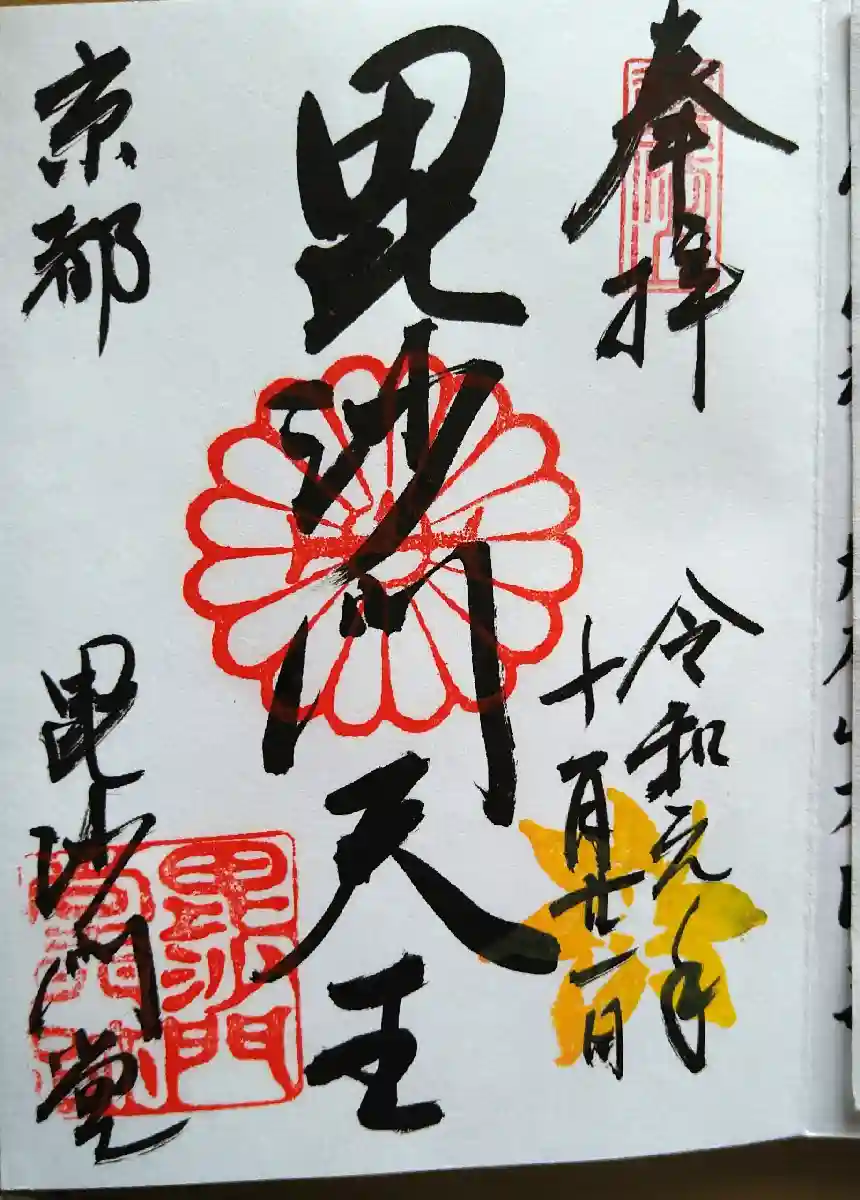 奉拝
令和元年
十一月廿一日
毘沙門天王
京都
毘沙門堂
毘沙門